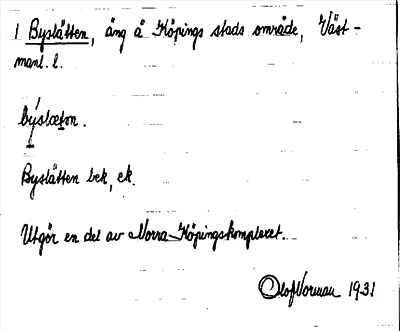 1 Byslätten, äng å Köpings stads område, Väst-
manl. l.
býslætən.
Byslätten bek, ek.
Utgör en del av Norra Köpingskomplexet.
Olof Norman 1931